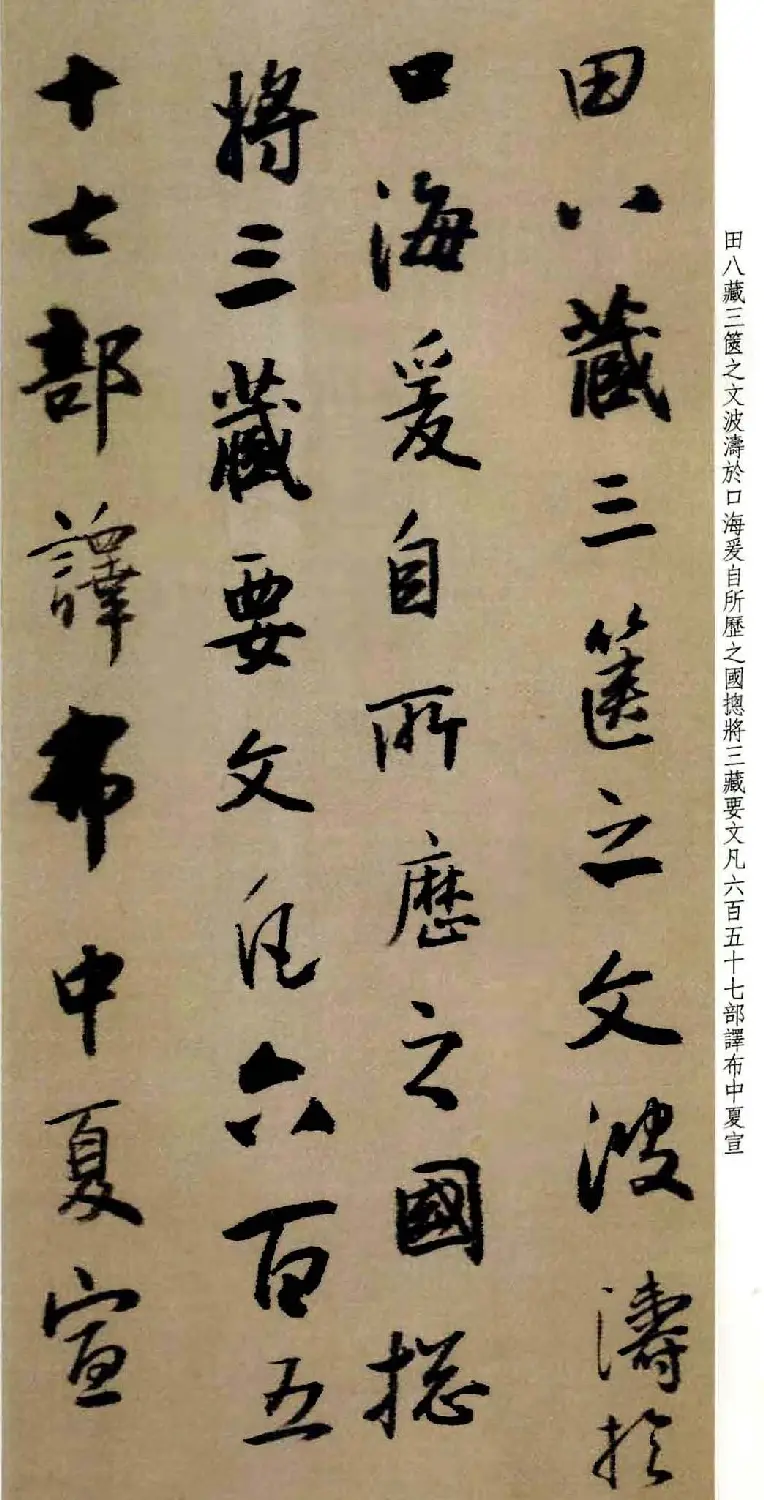 田八藏三箧之文波濤於
口海爰自所歷之國揔
將三藏要文凡六百五
十七部譯布中夏宣
田八藏三箧之文波濤於口海爰自所歷之國摠將三藏要文凡六百五十七部譯布中夏宣